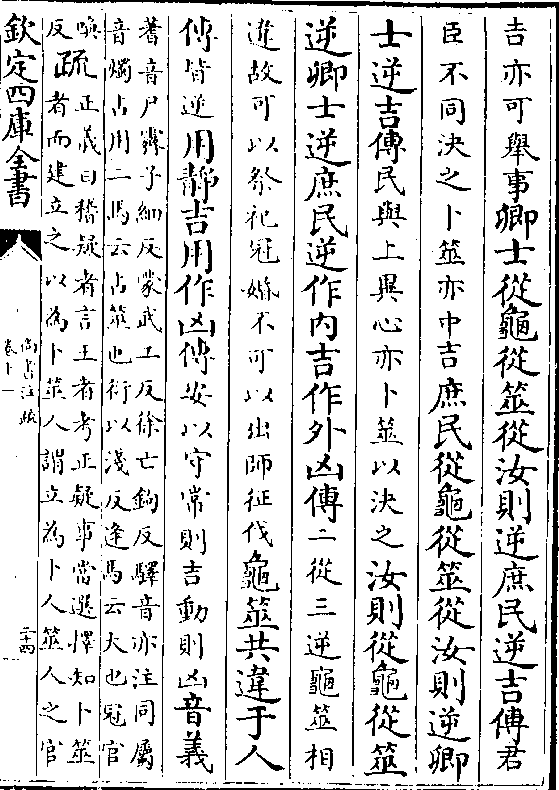 吉亦可舉事卿士從龜從筮從汝則逆庶民逆吉傳君
臣不同決之卜筮亦中吉庶民從龜從筮從汝則逆卿
士逆吉傳民與上異心亦卜筮以決之汝則從龜從筮
逆卿士逆庶民逆作内吉作外凶傳二從三逆龜筮相
違故可以祭祀冠婚不可以出師征伐龜筮共違于人
傳皆逆用靜吉用作凶傳安以守常則吉動則凶音義
蓍音尸霽子細反蒙武工反徐亡鉤反驛音亦注同屬
音燭占用二馬云占筮也衍以淺反逢馬云大也冠官
喚反疏正義曰稽疑者言王者考正疑事當選擇知卜筮
者而建立之以為卜筮人謂立為卜人筮人之官
欽定四庫全書
尚書注疏
卷十一
二十四